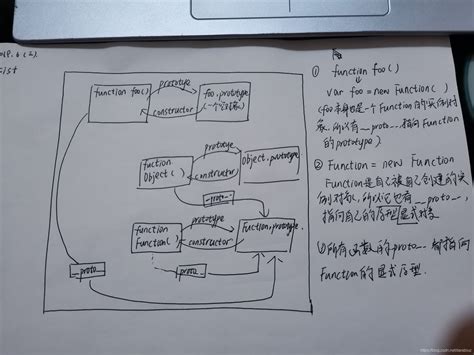 function foo()
prototype
constructor
foo.prototype
(一个空对象)
function
Object()
prototype
constructor
Object.prototype
__proto__
function
Function()
prototype
constructor
Function.prototype
__proto__
__proto__
① function foo()
var foo = new Function()
(foo本身也是一个Function的实例对
象,所以有__proto__指向Function
的prototype).
② Function = new Function
Function是自己被自己创建的实
例对象,所以它也有__proto__,
指向自己的原型显式
所有函数的proto__都指向
Function的显式原型.